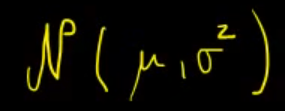 𝒩(μ,σ²)